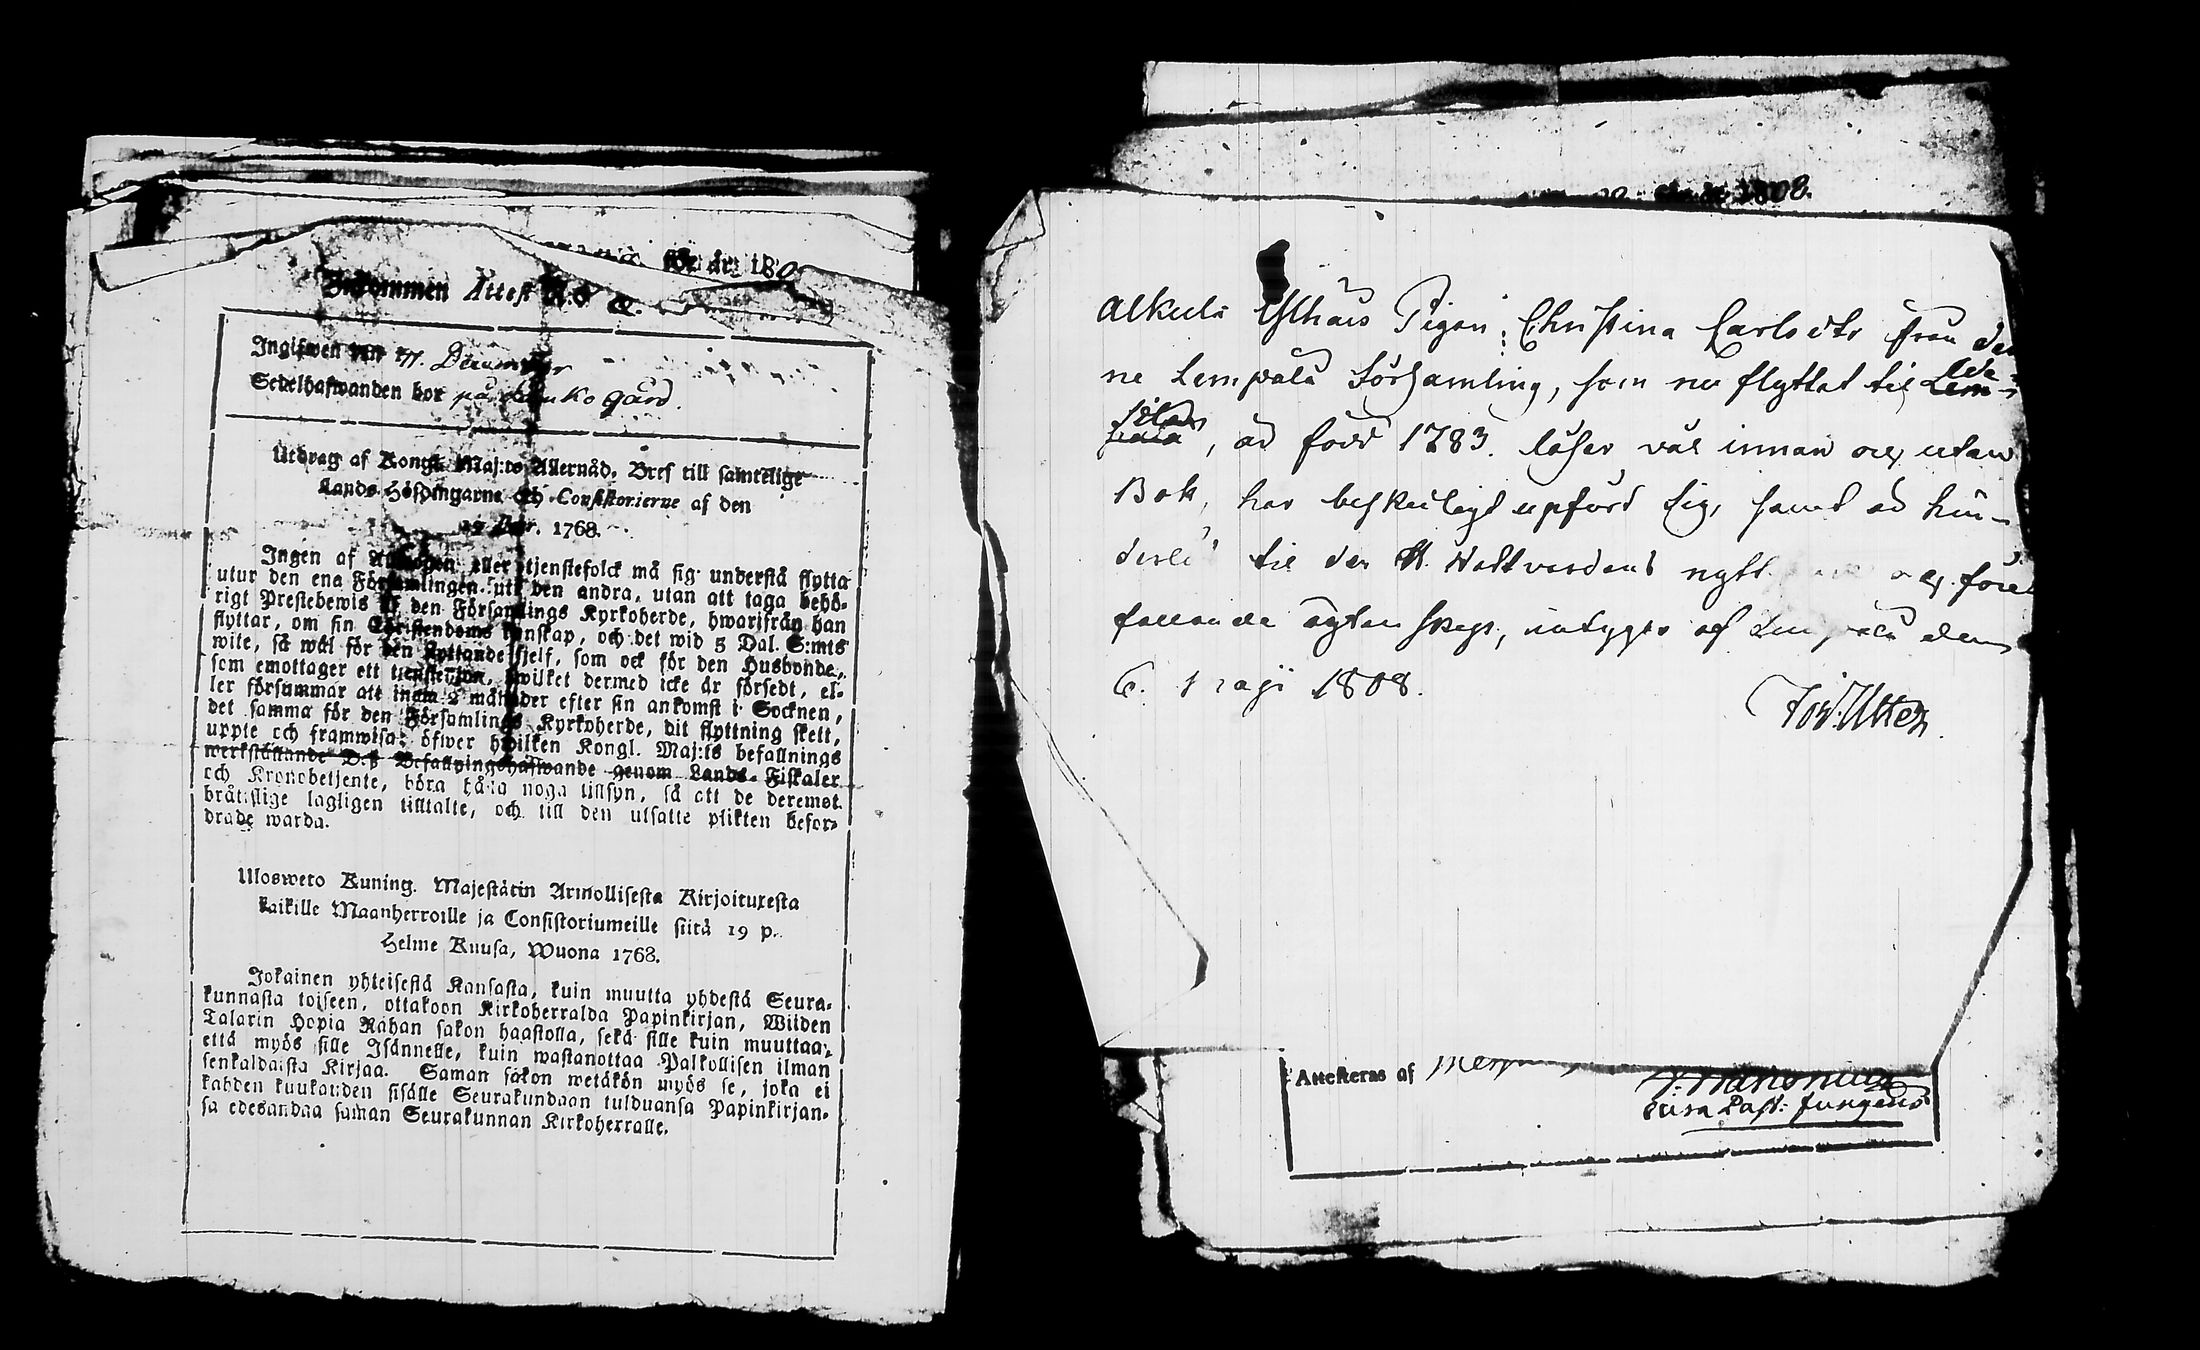 sle år 180
Inkommen Attest N:o
Ingifwen den 27. December
Sedelhafwanden bor på gård.
Utdrag af Kongl. Maj:ts Allernåd. Bref till samtelige
Lands-Höfdingarne och Consistorierne af den
19 1768.
Ingen af Allmogen eller tjenstefolck må sig understå flytta
utur den ena Församlingen uti den andra, utan att taga behö-
rigt Prestebewis af den Församlings Kyrkoherde, hwarifrån han
flyttar, om sin Christendoms kunskap, och det wid 5 Dal. S:mts
wite, så wäl för den flyttande sjelf, som ock för den Husbonde,
som emottager ett tjenstehjon, hwilket dermed icke är försedt, el-
ler försummar att inom 2 månader efter sin ankomst i Socknen,
det samma för den Församlings Kyrkoherde, dit flyttning skett,
uppte och framwisa; öfwer hwilken Kongl. Maj:ts befallnings
werkställande D:ß Befallningshafwande genom Lands-Fiskaler
och Kronobetjente, böra hålla noga tillsyn, så att de deremot
bråtslige lagligen tilltalte, och till den utsatte plikten befor-
drade warda.
Ulosweto Kuning. Majestätin Armollisesta Kirjoituxesta
kaikille Maanherroille ja Consistoriumeille siitä 19 p.
Helme Kuusa, Wuona 1768.
Jokainen yhteisestä Kansasta, kuin muutta yhdestä Seura-
kunnasta toiseen, ottakoon Kirkoherralda Papinkirjan, Wiiden
Talarin Hopia Rahan sakon haastolla, sekä sille kuin muuttaa,
että myös sille Isännelle, kuin wastanottaa Palkollisen ilman
senkaldaista Kirjaa. Saman sakon wetäkön myös se, joka ei
kahden kuukauden sisälle Seurakundaan tulduansa Papinkirjan-
sa edesandaa saman Seurakunnan Kirkoherralle.
1808.
Alkula Ylhäis Pigan: Christina Carlsdtr från den
ne Lempälä Församling, som nu flyttat til
, är född 1783. läser väl innan och utan
Bok, har beskedligt upfört sig, samt är hin-
til den H. Nattvardens nytt och före
fallande ägtenskap, intyges af Lempälä den
6. Maji 1808.
Attesteras af